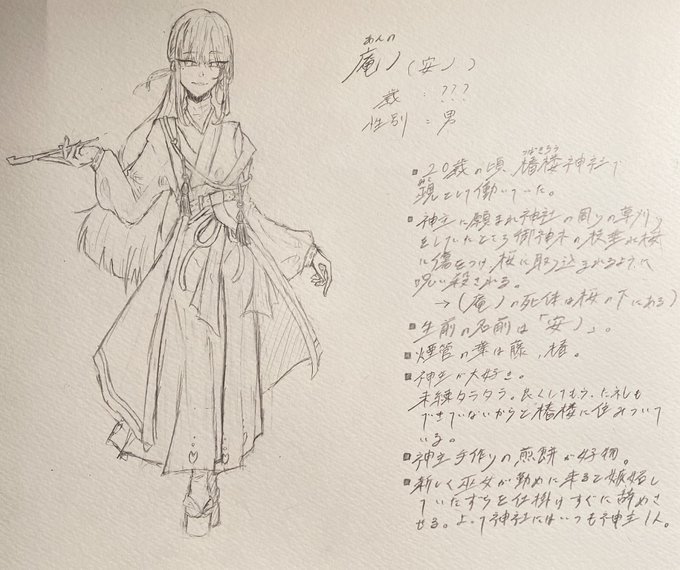 あんの
庵ノ(安ノ)
歳:???
性別:男
つばきろう
▪20歳の頃、椿楼神社で
覡として働いていた。
▪神主に頼まれ神社の周りの草刈り
をしていたところ御神木の枝垂れ桜
に傷をつけ桜に取り込まれるように
呪い殺される。
→(庵ノの死体は桜の下にある)
▪生前の名前は「安ノ」。
▪煙管の葉は藤、椿。
▪神主が大好き。
未練タラタラ。良くしてもらったお礼も
できていないからと椿楼に住みついて
いる。
▪神主手作りの煎餅が好物。
▪新しく巫女が勤めに来ると嫉妬し
ていたずらを仕掛けすぐに辞めさ
せる。よって神社にはいつも神主1人。